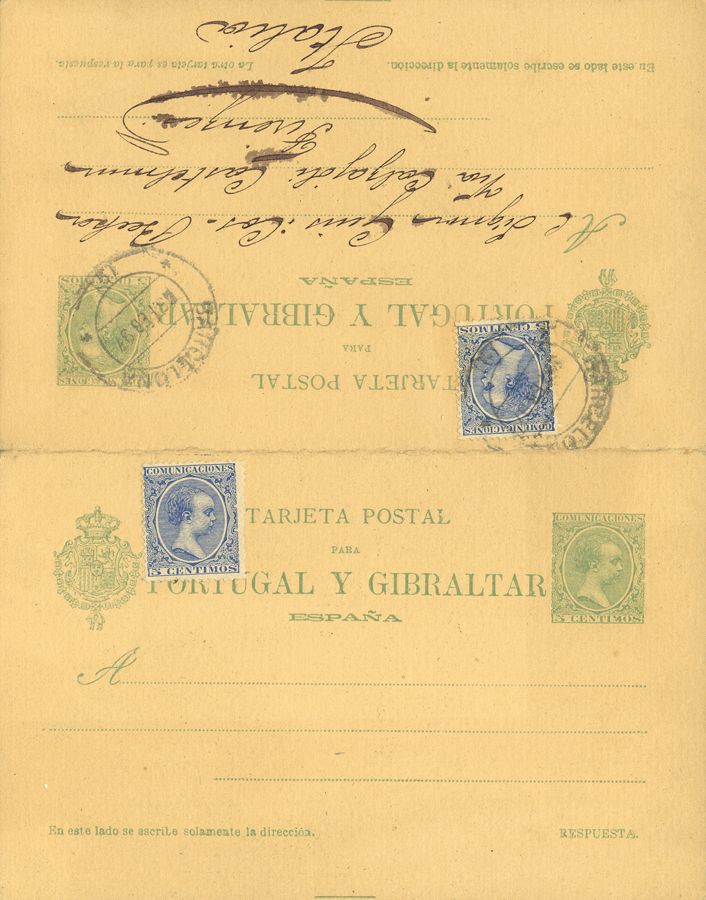 TARJETA POSTAL
PARA
PORTUGAL Y GIBRALTAR
ESPAÑA
COMUNICACIONES
5 CENTIMOS
COMUNICACIONES
5 CENTIMOS
BARCELONA
BARCELONA
A
Signor Guis: Cos. Becker
Via Calzajoli
Firenze
Italia
En este lado se escribe solamente la dirección.
La otra tarjeta es para la respuesta.
COMUNICACIONES
5 CENTIMOS
TARJETA POSTAL
PARA
PORTUGAL Y GIBRALTAR
ESPAÑA
COMUNICACIONES
5 CENTIMOS
A
En este lado se escribe solamente la dirección.
RESPUESTA.